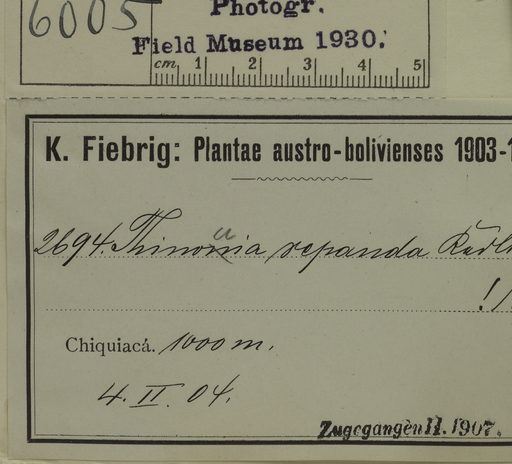 6005
Photogr.
Field Museum 1930.
cm 1 2 3 4 5
K. Fiebrig: Plantae austro-bolivienses 1903-1
2694. Thinouia repanda Radl
!
Chiquiacá. 1000 m.
4. II. 04.
Zugegangen II. 1907.